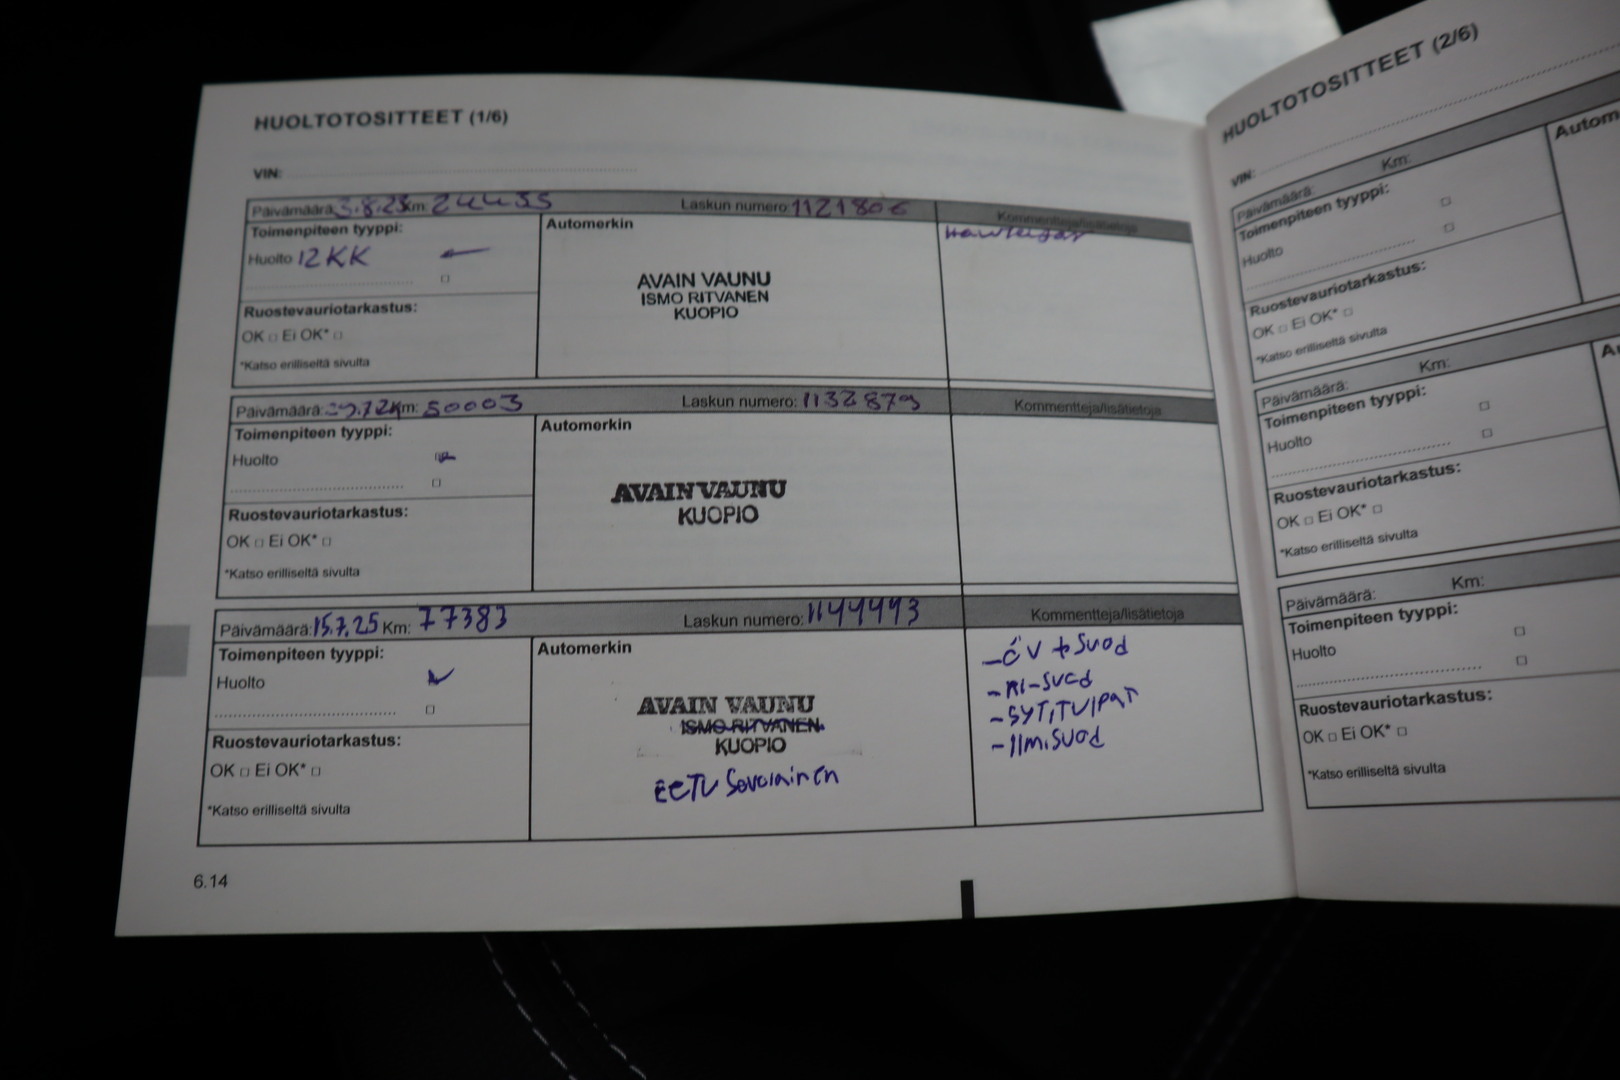 HUOLTOTOSITTEET (1/6)
VIN:
Päivämäärä: 3.8.23 Km: 24435 Laskun numero: 1121806 Kommentteja/lisätietoja
Toimenpiteen tyyppi:
Huolto 12KK
Ruostevauriotarkastus:
OK □ Ei OK* □
*Katso erilliseltä sivulta
Automerkin
AVAIN VAUNU
ISMO RITVANEN
KUOPIO
Päivämäärä: Km: 50003 Laskun numero: 1132879 Kommentteja/lisätietoja
Toimenpiteen tyyppi:
Huolto
Ruostevauriotarkastus:
OK □ Ei OK* □
*Katso erilliseltä sivulta
Automerkin
AVAIN VAUNU
KUOPIO
Päivämäärä: 15.7.25 Km: 77383 Laskun numero: 1144443 Kommentteja/lisätietoja
Toimenpiteen tyyppi:
Huolto
Ruostevauriotarkastus:
OK □ Ei OK* □
*Katso erilliseltä sivulta
Automerkin
AVAIN VAUNU
ISMO RITVANEN
KUOPIO
EETU Savolainen
-ÖV + Suod
-RI-suod
-SYT.TULPAT
-Ilm.suod
6.14
HUOLTOTOSITTEET (2/6)
VIN:
Päivämäärä: Km:
Toimenpiteen tyyppi:
Huolto
Ruostevauriotarkastus:
OK □ Ei OK* □
*Katso erilliseltä sivulta
Päivämäärä: Km:
Toimenpiteen tyyppi:
Huolto
Ruostevauriotarkastus:
OK □ Ei OK* □
*Katso erilliseltä sivulta
Päivämäärä: Km:
Toimenpiteen tyyppi:
Huolto
Ruostevauriotarkastus:
OK □ Ei OK* □
*Katso erilliseltä sivulta